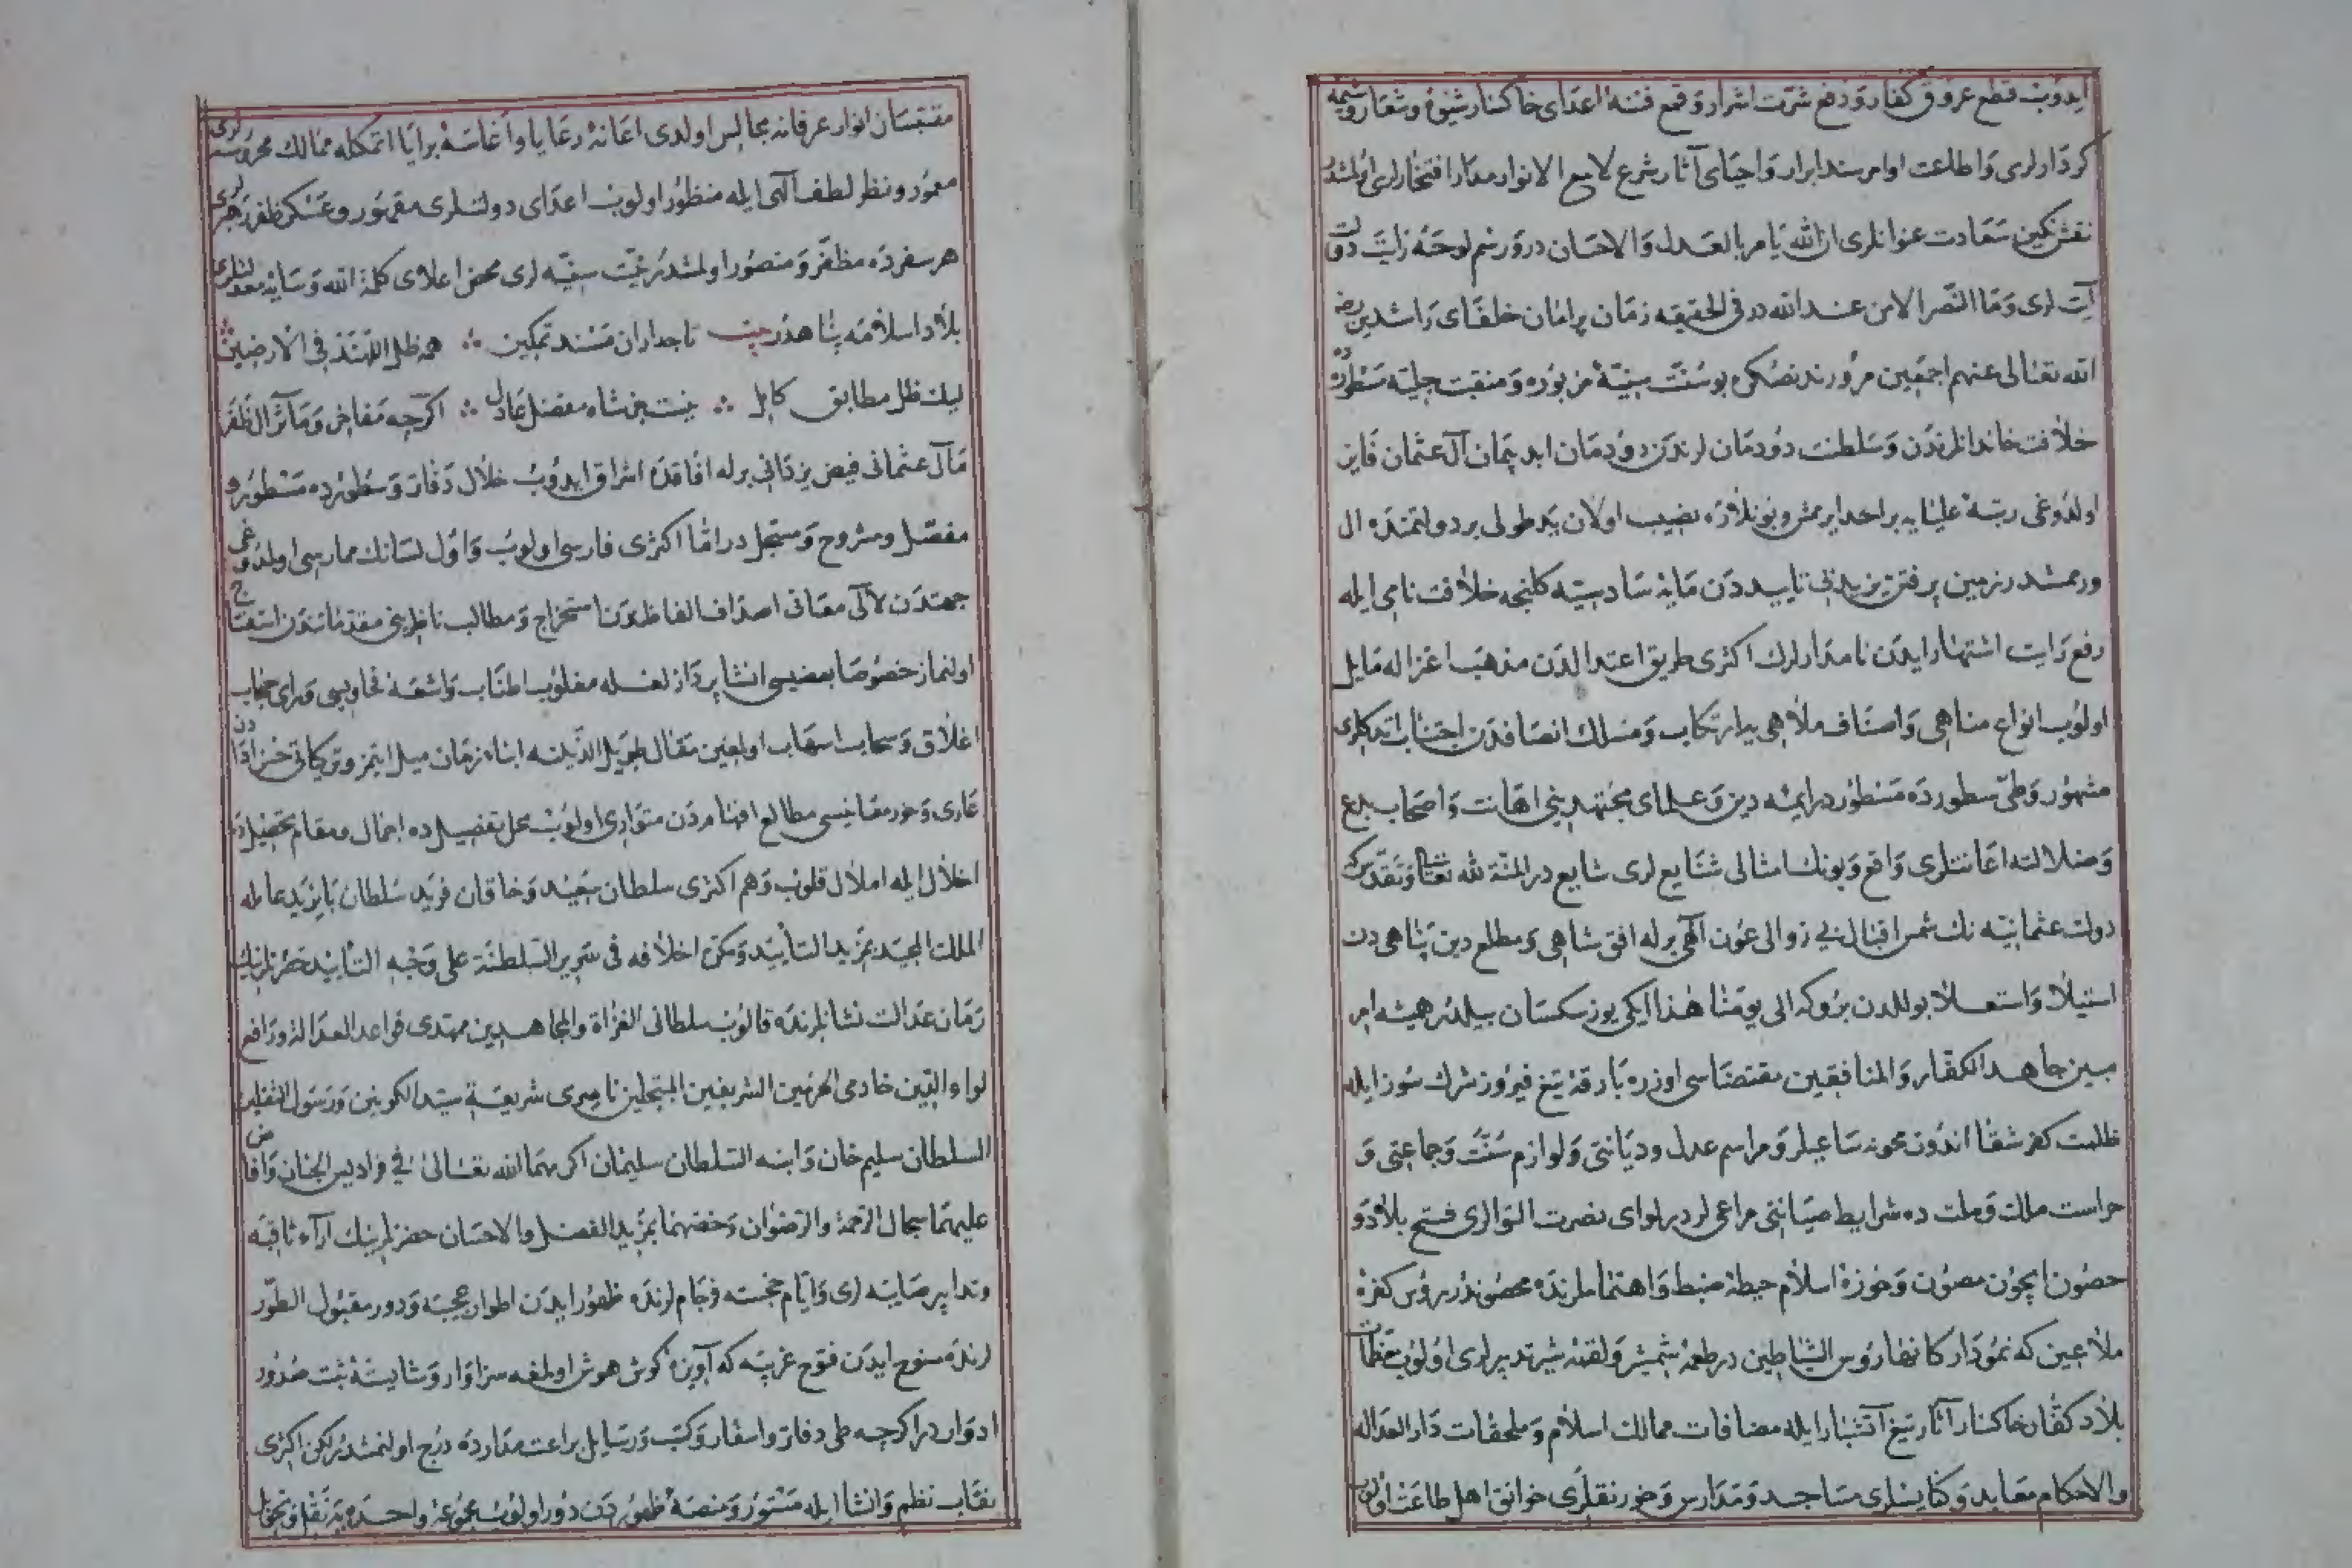 ايدوب قطع عروق كفار ودفع شرت اشرار وقمع فتنهٔ اعداى خاكسار شيوه وشعار وشيمه
كردارلرى واطاعت اوامر سند ابرار واحياى آثار شرع لامع الانوار مدار افتخارلرى اولمشدر
نقش نكين سعادت عنوانلرى ان الله يامر بالعدل والاحسان در ورسم لوحهٔ رايت دولت
آيت لرى وما النصر الا من عند الله در فى الحقيقه زمان پرامان خلفاى راشدين رضى
الله تعالى عنهم اجمعين مرورندنصكره بو سنت سنيهٔ مزبوره ومنقبت جليهٔ مسطوره ده
خلافت خاندانلرندن وسلطنت دودمان لرندن دودمان ابد پيمان آل عثمان فايز
اولدوغى رتبهٔ عليايه بر احد ايرممش وبونلره نصيب اولان يد طولى بر دولتمنده ال
ورممشدر زمين پرفتن يزيدى تاييددن مايهٔ سادسيه كلنجه خلافت نامى ايله
رفع رايت اشتهار ايدن نامدارلرك اكثرى طريق اعتدالدن مذهب اعتزاله مايل
اولوب انواع مناهى واصناف ملاهى يه ارتكاب ومسلك انصافدن اجتناب ايتدكلرى
مشهور وطى سطورده مسطوردر ايمهٔ دين وعلماى مجتهدينى اهانت واصحاب بدع
وضلالته اعانتلرى واقع وبونك امثالى شنايع لرى شايع در المنة لله تعالى وتقدس كه
دولت عثمانيه نك شمس اقبال بى زوالى عون الهى برله افق شاهى ومطلع دين پناهى دن
استيلا واستعلا بولالدن بروكه الى يومنا هذا ايكى يوز سكسان ييلدر هميشه امر
مبين جاهد الكفار والمنافقين مقتضاسى اوزره بارقهٔ تيغ فيروز شرك سوز ايله
ظلمت كفر شقا اندون محونه ساعيلر ومراسم عدل وديانتى ولوازم سنت وجماعتى و
حراست ملك وملت ده شرايط صيانتى مراعى لردر لواى نصرت التوالرى فتح بلاد و
حصون ايچون مصون وحوزهٔ اسلام حيطهٔ ضبط واهتماملرنده محصوندر رؤس كفرهٔ
ملاعين كه نمودار كانها رؤس الشياطين در طعمهٔ شمشير ولقمهٔ شير تدبيرلرى اولوب
بلاد كفار خاكسار آثار تيغ آتشبار ايله مضافات ممالك اسلام وملحقات دار العداله
والاحكام معابد وكنايسلرى مساجد ومدارس وخورنقلرى خوانق اهل طاعت اولوب
مقتبسان انوار عرفانه مجالس اولدى اعانهٔ رعايا واغاثهٔ برايا اتمكله ممالك محروسه لرى
معمور ونظر لطف الهى ايله منظور اولوب اعداى دولتلرى مقهور وعسكر ظفر رهبرلرى
هر سفرده مظفر ومنصور اولمشدر نيت سنيه لرى محض اعلاى كلمة الله وسايهٔ معدلتلرى
بلاد اسلامه پناهدر بيت تاجداران مسند تمكين ∴ همه ظل الله فى الارضين ∴
ليك ظل مطابق كامل ∴ نيست جز شاه مفضل عادل ∴ اكرچه مفاخر ومآثر آل ظفر
مآل عثمانى فيض يزدانى برله افاقده اشراق ايدوب خلال دفاتر وسطورده مسطور و
مفصل ومشروح ومسجل در اما اكثرى فارسى اولوب واول لسانك ممارسى اولدوغى
جهتدن لآلى معانى اصداف الفاظدن استخراج ومطالب ناظرينى مقدماتندن استنتاج
اولنماز خصوصا بعضيسى انشا پردازلغله مغلوب اطناب واشعهٔ فحاويسى وراى حجاب
اغلاق وسحاب اسهاب اولمغين مقال طويل الذيلنه ابناء زمان ميل ايتمز وتركانى خزادادن
عارى وحور معانيسى مطالع افهامدن متوارى اولوب محل تفصيل ده اجمال ومقام تحصيلده
اخلال ايله املال قلوب وهم اكثرى سلطان سعيد وخاقان فريد سلطان بايزيد عامله
الملك المجيد بمزيد التأييد ومكن اخلافه فى سرير السلطنة على وجه التأبيد حضرتلرينك
زمان عدالت نشانلرنده قالوب سلطانى الغزاة والمجاهدين ممهدى قواعد العدالة ورافعى
لواء الدين خادمى الحرمين الشريفين المبجلين ناصرى شريعة سيد الكونين ورسول الثقلين
السلطان سليم خان وابنه السلطان سليمان اكرمهما الله تعالى فى فراديس الجنان وافاض
عليهما سجال الرحمة والرضوان وخصهما بمزيد الفضل والاحسان حضرتلرينك آراء ثاقبه
وتدابير صايبه لرى وايام خجسته فرجام لرنده ظهور ايدن اطوار عجيبه ودور مقبول الطور
لرنده سنوح ايدن فتوح غريبه كه آويزهٔ كوش هوش اولمغه سزاوار وشايستهٔ ثبت صدور
ادوار در اكرچه طى دفاتر واسفار وكتب ورسايل براعت مدارده درج اولنمشدر لكن اكثرى
نقاب نظم وانشا ايله مستور ومنصهٔ ظهوردن دور اولوب مجموعهٔ واحده ده